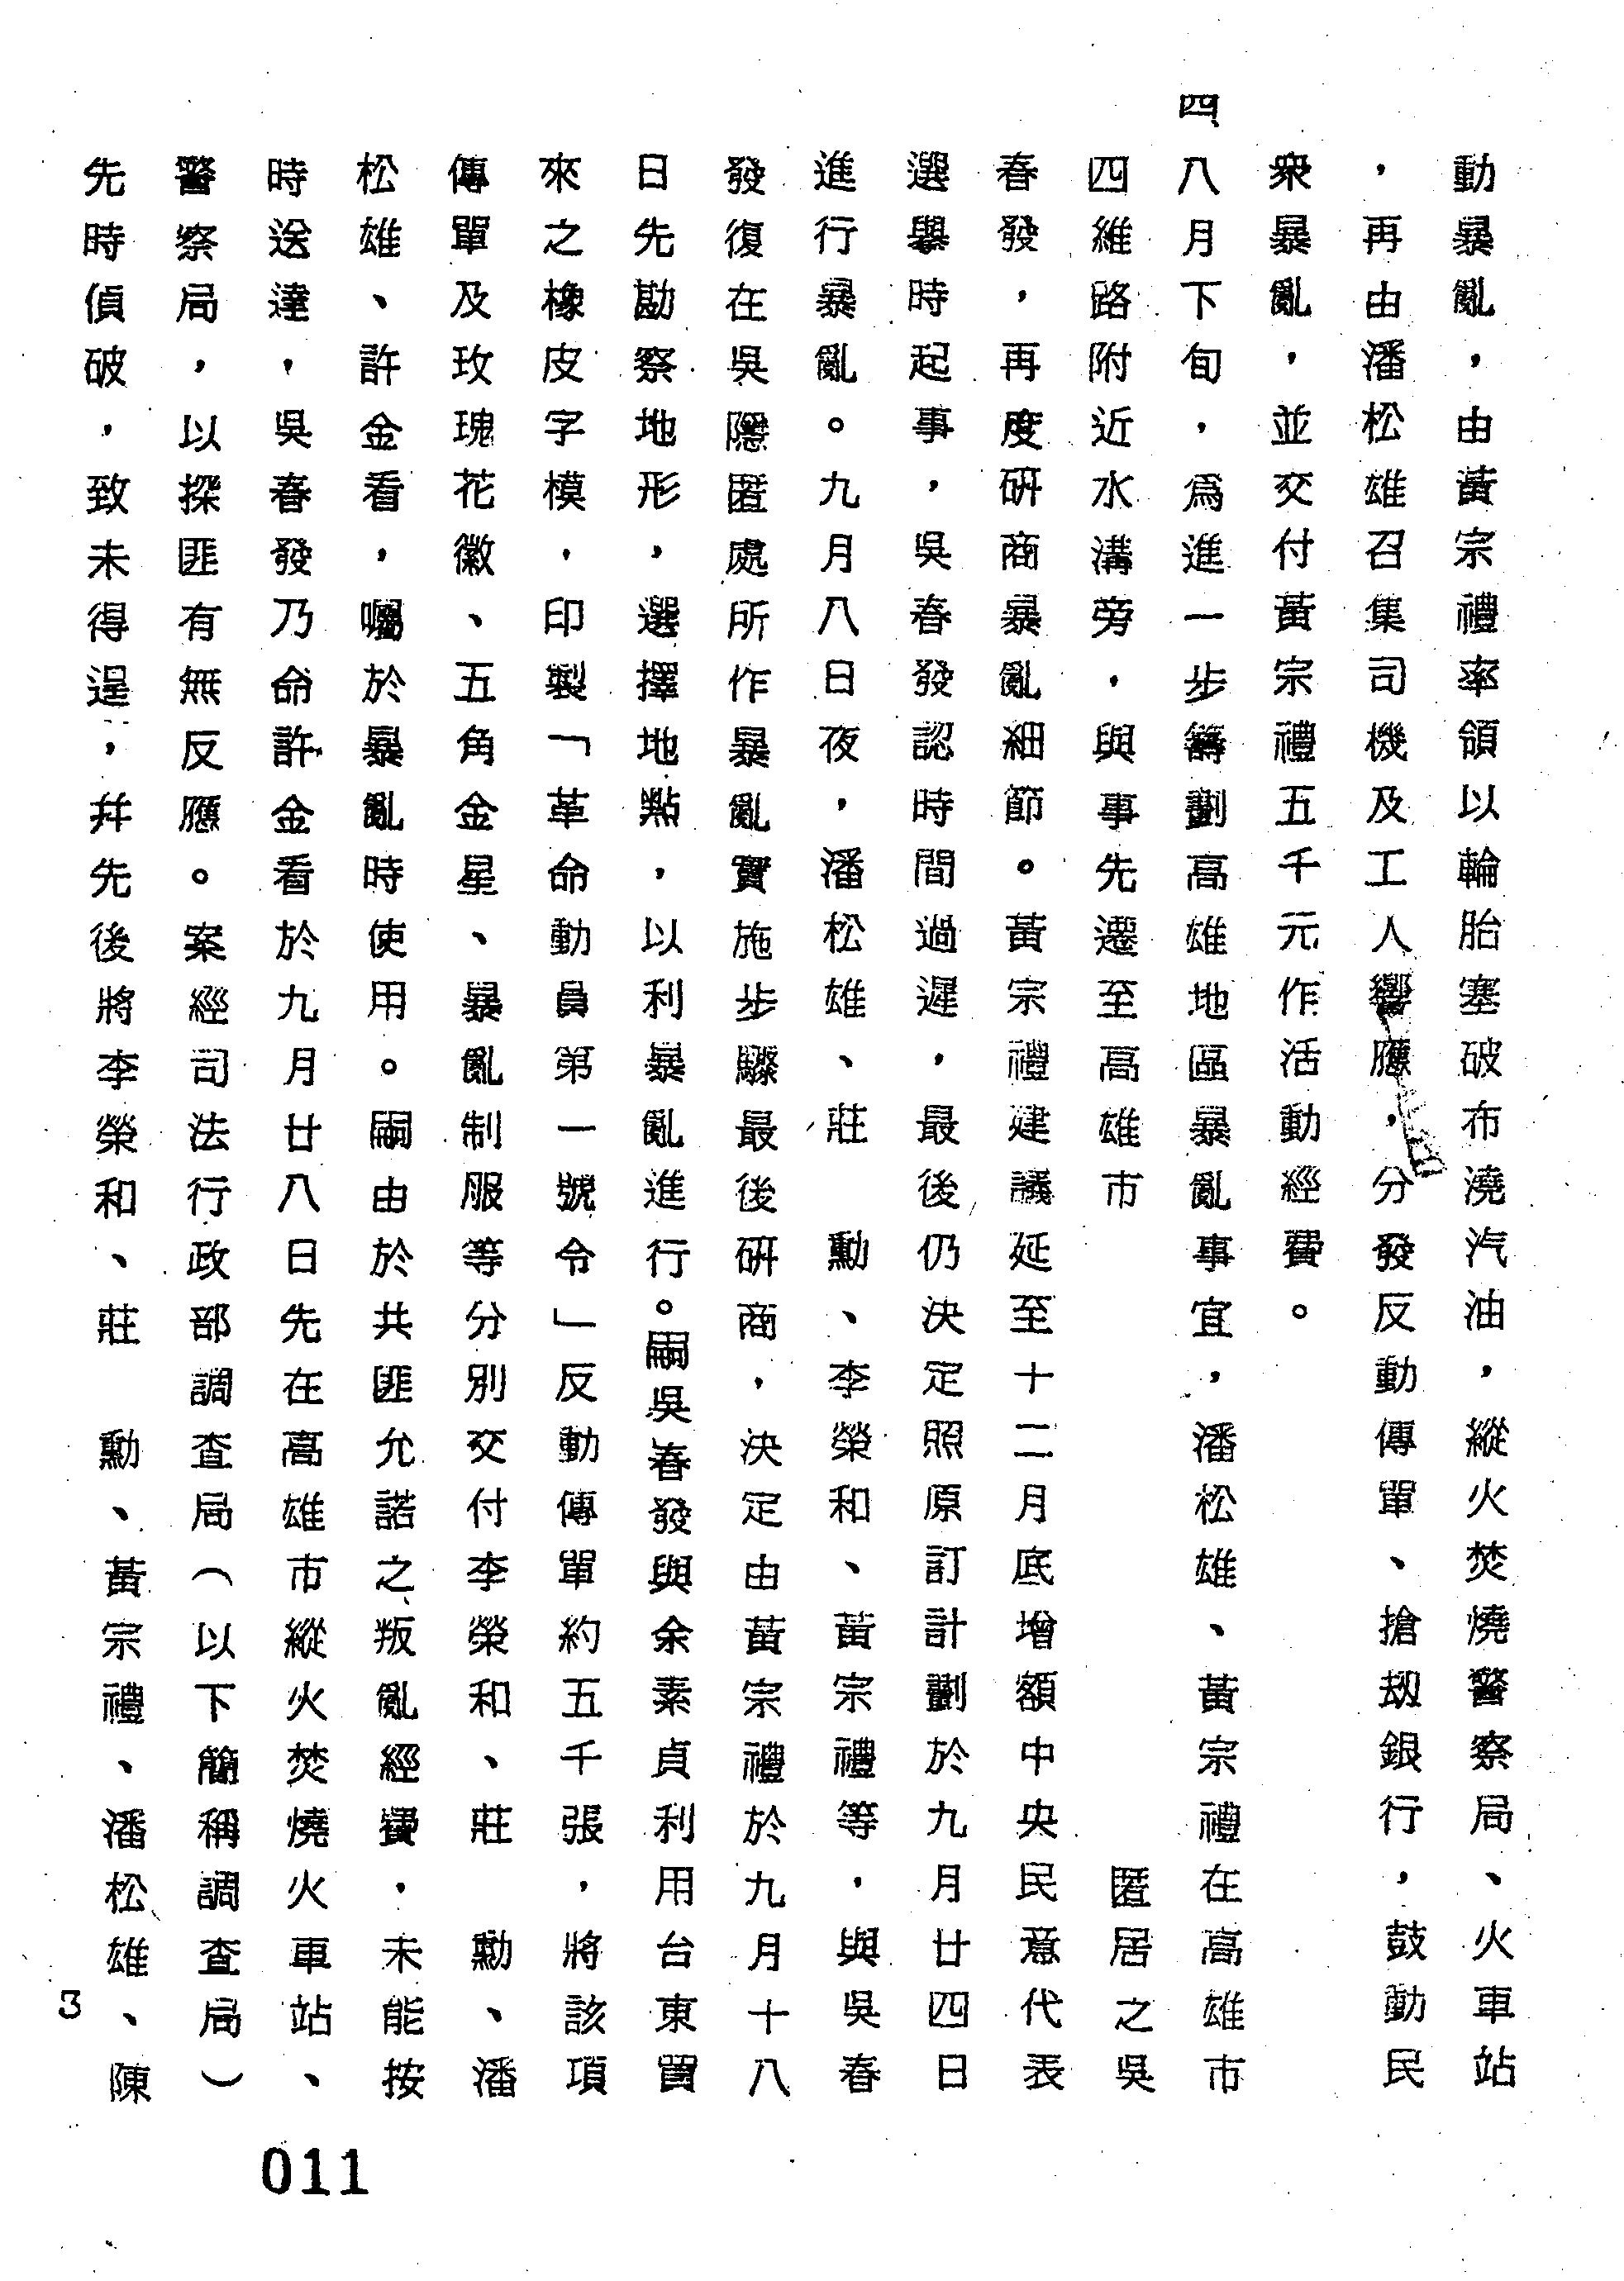 動暴亂，由黃宗禮率領以輪胎塞破布澆汽油，縱火焚燒警察局、火車站
，再由潘松雄召集司機及工人響應，分發反動傳單、搶刼銀行，鼓動民
衆暴亂，並交付黃宗禮五千元作活動經費。
四、八月下旬，爲進一步籌劃高雄地區暴亂事宜，潘松雄、黃宗禮在高雄市
四維路附近水溝旁，與事先遷至高雄市　匿居之吳
春發，再度硏商暴亂細節。黃宗禮建議延至十二月底增額中央民意代表
選舉時起事，吳春發認時間過遲，最後仍決定照原訂計劃於九月廿四日
進行暴亂。九月八日夜，潘松雄、莊　勳、李榮和、黃宗禮等，與吳春
發復在吳隱匿處所作暴亂實施步驟最後硏商，決定由黃宗禮於九月十八
日先勘察地形，選擇地點，以利暴亂進行。嗣吳春發與余素貞利用台東買
來之橡皮字模，印製「革命動員第一號令」反動傳單約五千張，將該項
傳單及玫瑰花徽、五角金星、暴亂制服等分別交付李榮和、莊　勳、潘
松雄、許金看，囑於暴亂時使用。嗣由於共匪允諾之叛亂經費，未能按
時送達，吳春發乃命許金看於九月廿八日先在高雄市縱火焚燒火車站、
警察局，以探匪有無反應。案經司法行政部調查局（以下簡稱調查局）
先時偵破，致未得逞，幷先後將李榮和、莊　勳、黃宗禮、潘松雄、陳
3
011